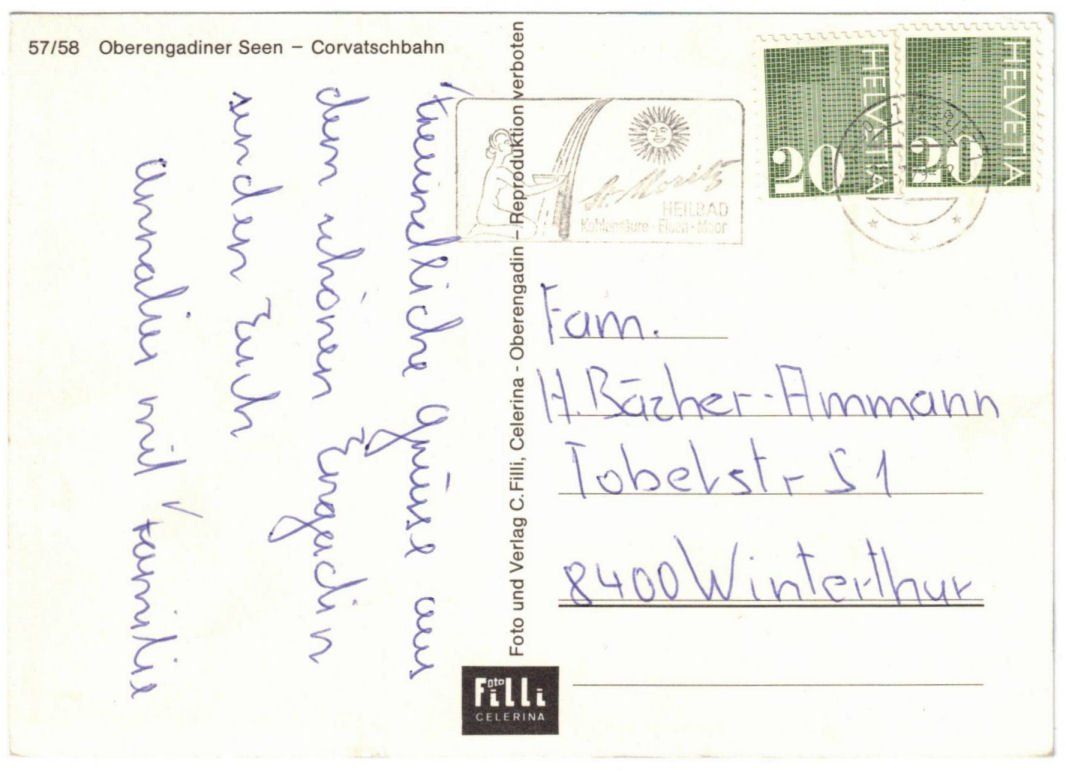 57/58 Oberengadiner Seen – Corvatschbahn
Freundliche Grüsse aus
dem schönen Engadin
senden Euch
Annalies mit Familie
Foto und Verlag C. Filli, Celerina - Oberengadin – Reproduktion verboten
St. Moritz
HEILBAD
Kohlensäure - Eisen - Moor
HELVETIA
20
HELVETIA
20
Fam.
H. Bächer-Ammann
Tobelstr 51
8400 Winterthur
Foto
Filli
CELERINA